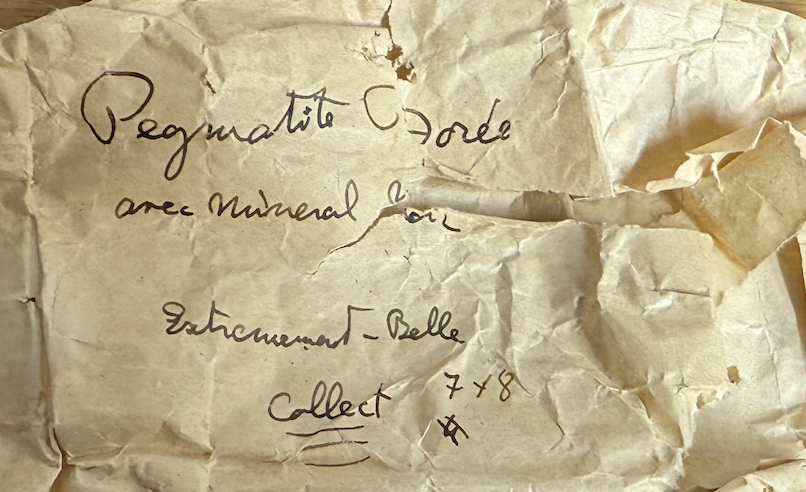 Pegmatite
avec mineral
Extremement - Belle
Collect 7 x 8